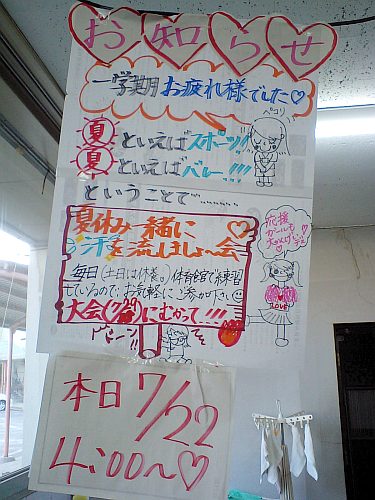 お知らせ
一学期お疲れ様でした♡
ペコリ
夏といえばスポーツ!!
夏といえばバレー!!!
ということで………
夏休み一緒に♡
汗を流しましょ〜会
毎日(土日は休業。)体育館で練習
しているので、お気軽にご参加下さい
大会にむかって!!!
応援
ガールも
LOVE
本日7/22
4:00〜♡